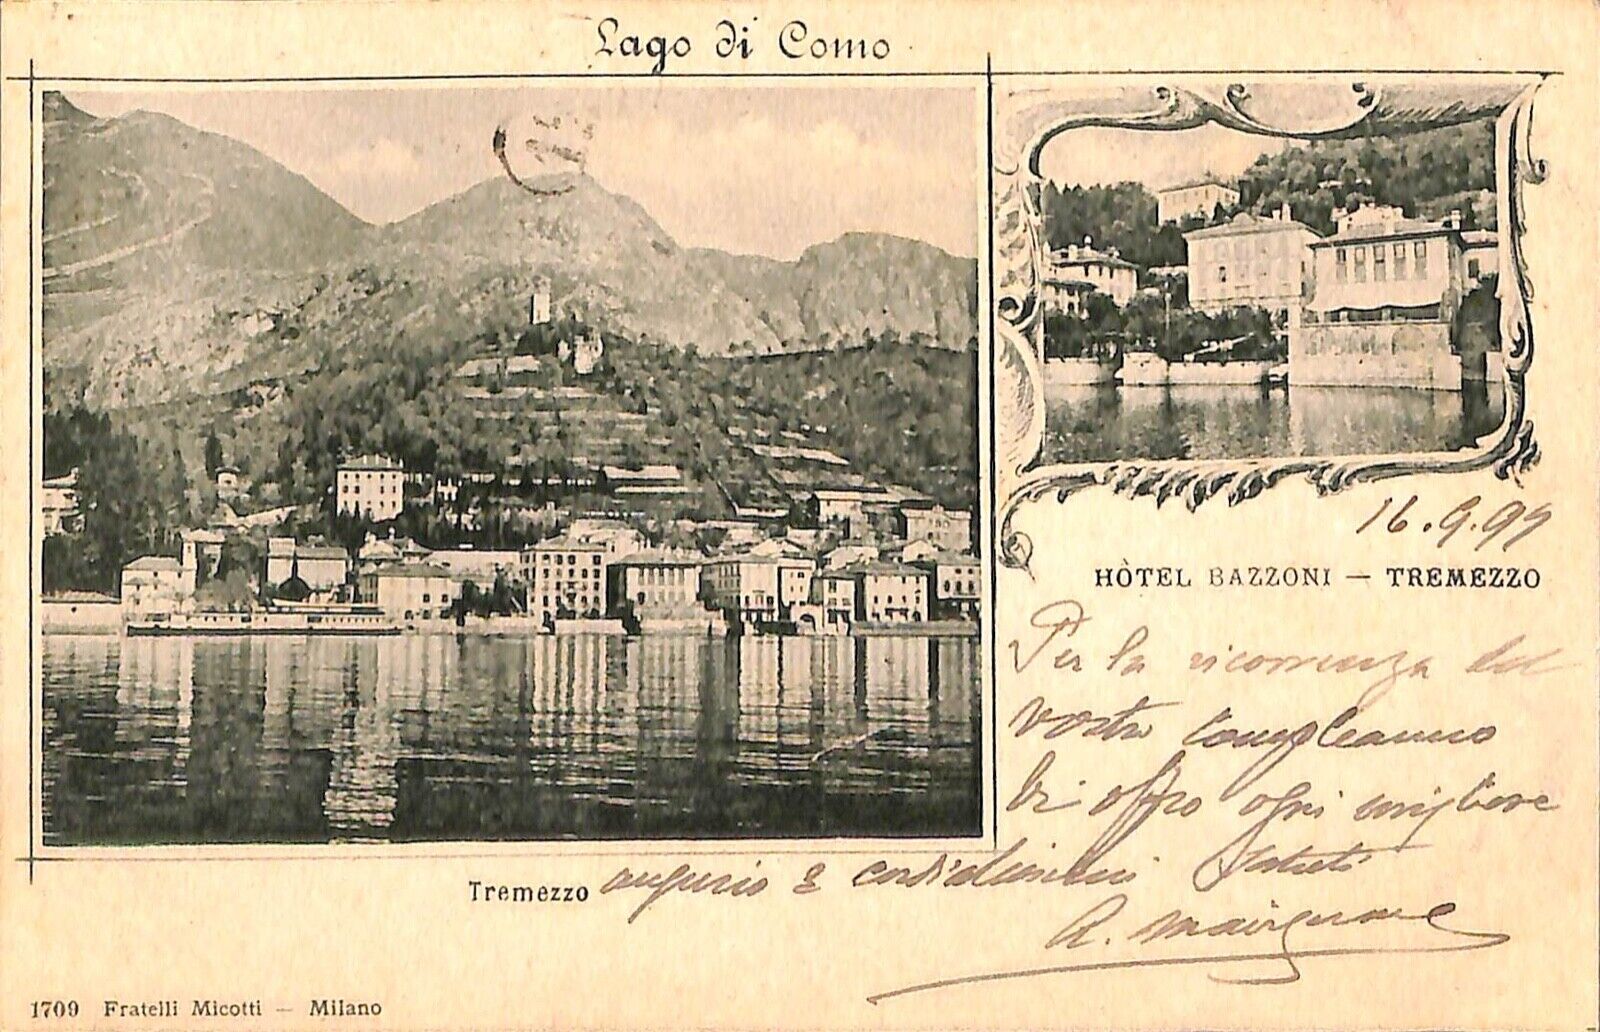 Lago di Como
16.9.99
HÒTEL BAZZONI — TREMEZZO
Per la ricorrenza del
vostro compleanno
Vi offro ogni migliore
Tremezzo
augurio e cordialissimi saluti
1709 Fratelli Micotti — Milano